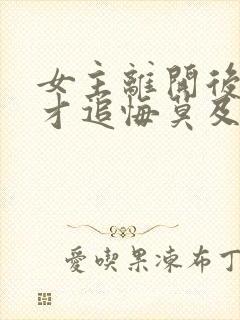 女主離開後
才追悔莫及
愛喫果凍布丁